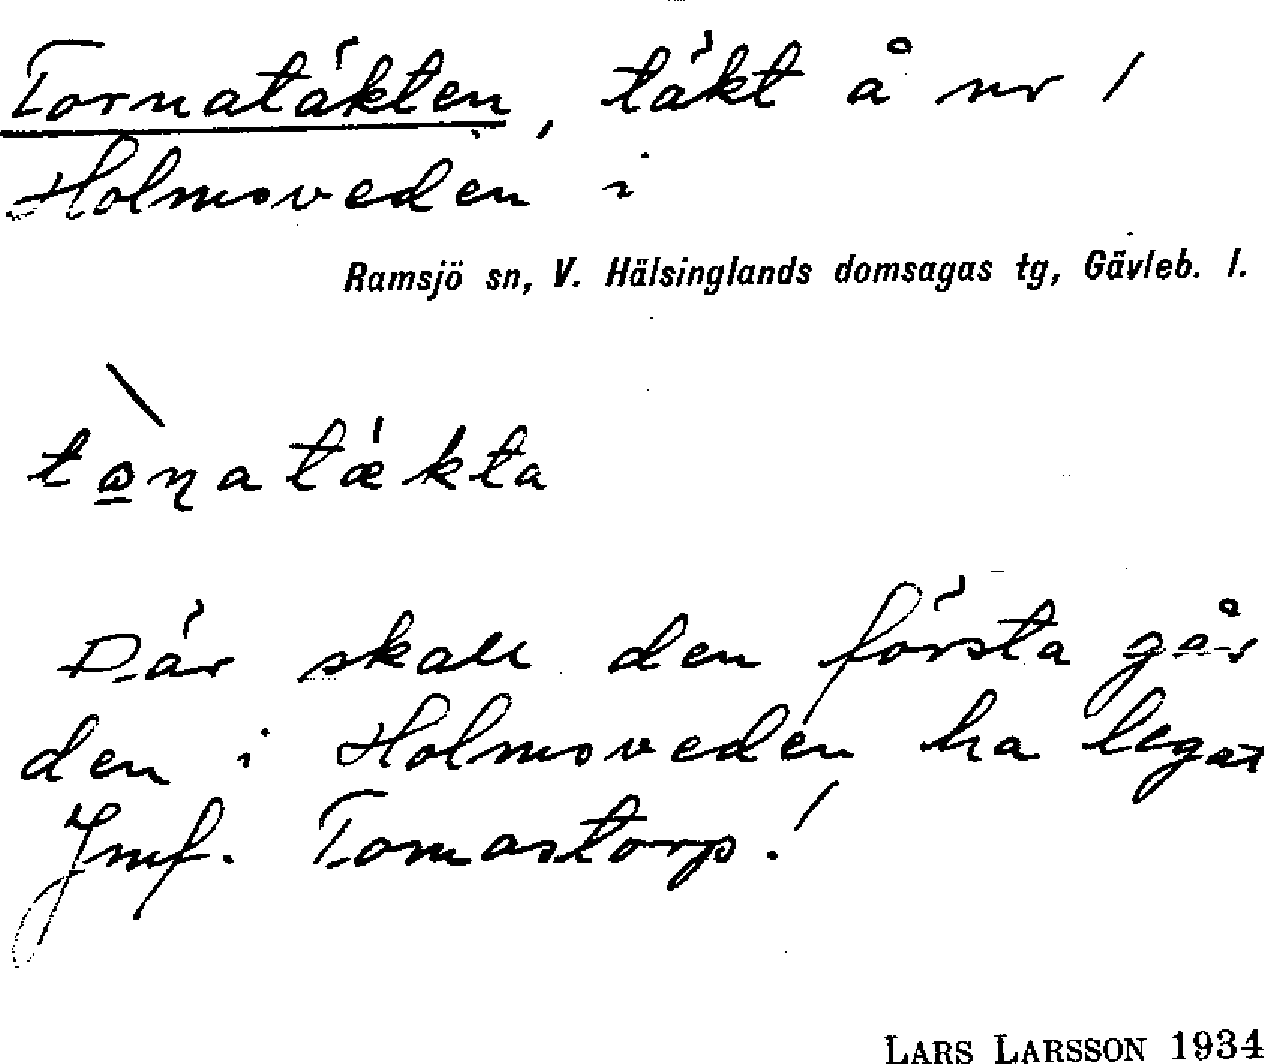 Tornatäkten, täkt å nr 1
Holmsveden i
Ramsjö sn, V. Hälsinglands domsagas tg, Gävleb. l.
Där skall den första går
den i Holmsveden ha legat
Jmf. Tomastorp!
LARS LARSSON 1934